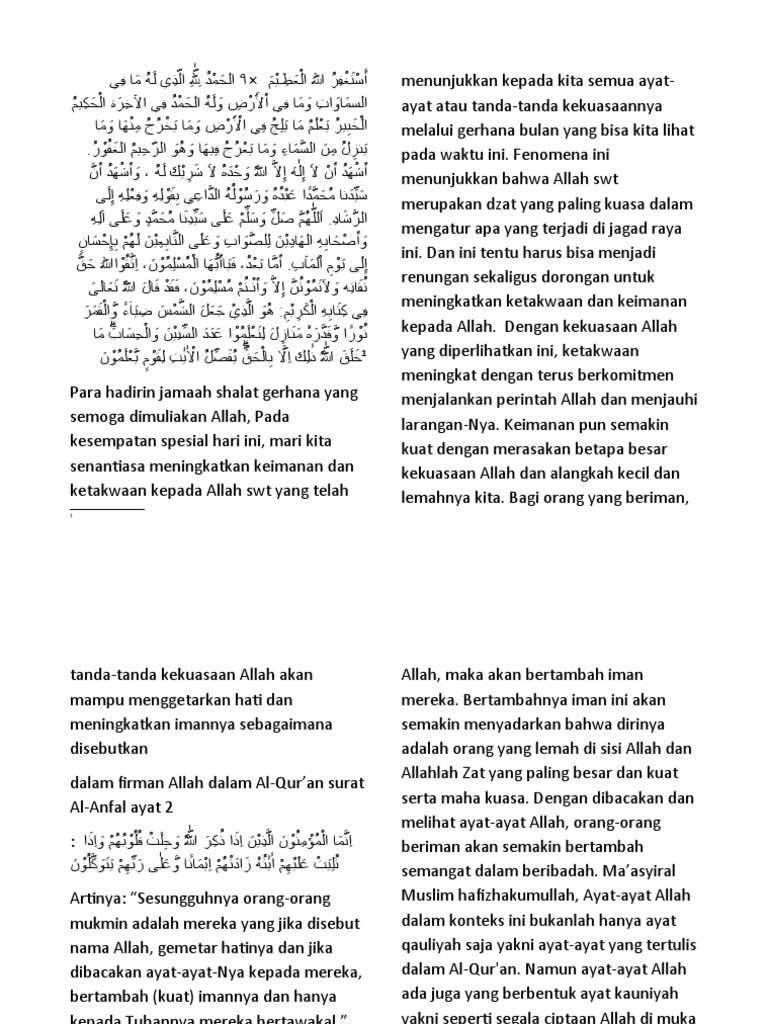 أَسْتَغْفِرُ اللهَ الْعَظِـيْمَ ×٩ الحَمْدُ لِلّٰهِ الَّذِي لَهُ مَا فِي
السمَاوَاتِ وَمَا فِي الْأَرْضِ وَلَهُ الحَمْدُ فِي الآخِرَة الْحَكِيمُ
الْخَبِيرُ يَعْلَمُ مَا يَلِجُ فِي الْأَرْضِ وَمَا يَخْرُجُ مِنْهَا وَمَا
يَنزِلُ مِنَ السَّمَاءِ وَمَا يَعْرُجُ فِيهَا وَهُوَ الرَّحِيمُ الغَفُوْرُ.
أشْهَدُ أنْ لاَ إِلٰهَ إِلاَّ اللهُ وَحْدَهُ لاَ شَرِيْكَ لَهُ ، وَأشْهَدُ أنَّ
سَيِّدَنا مُحَمَّدًا عَبْدُهُ وَرَسُوْلُهُ الدَّاعِي بِقَوْلِهِ وَفِعْلِهِ إِلَى
الرَّشَادِ. اَللّٰهُمَّ صَلِّ وَسَلِّمْ عَلَى سَيِّدِنَا مُحَمَّدٍ وَعَلَى آلِهِ
وَأصْحَابِهِ الهَادِيْنَ لِلصَّوَابِ وَعَلَى التَّابِعِيْنَ لَهُمْ بِإِحْسَانٍ
إِلَى يَوْمِ الْمَآبِ. أمَّا بَعْدُ، فَيَاأيُّهَا الْمُسْلِمُوْنَ، اِتَّقُوْااللهَ حَقَّ
تُقَاتِه وَلاَتَمُوْتُنَّ إِلاَّ وَأنْـتُمْ مُسْلِمُوْنَ، فَقَدْ قَالَ اللهُ تَعَالَى
فِي كِتَابِهِ الْكَرِيْمِ: هُوَ الَّذِيْ جَعَلَ الشَّمْسَ ضِيَاۤءً وَّالْقَمَرَ
نُوْرًا وَّقَدَّرَهٗ مَنَازِلَ لِتَعْلَمُوْا عَدَدَ السِّنِيْنَ وَالْحِسَابَۗ مَا
خَلَقَ اللّٰهُ ذٰلِكَ اِلَّا بِالْحَقِّۗ يُفَصِّلُ الْاٰيٰتِ لِقَوْمٍ يَّعْلَمُوْنَ¹
Para hadirin jamaah shalat gerhana yang
semoga dimuliakan Allah, Pada
kesempatan spesial hari ini, mari kita
senantiasa meningkatkan keimanan dan
ketakwaan kepada Allah swt yang telah
1
menunjukkan kepada kita semua ayat-
ayat atau tanda-tanda kekuasaannya
melalui gerhana bulan yang bisa kita lihat
pada waktu ini. Fenomena ini
menunjukkan bahwa Allah swt
merupakan dzat yang paling kuasa dalam
mengatur apa yang terjadi di jagad raya
ini. Dan ini tentu harus bisa menjadi
renungan sekaligus dorongan untuk
meningkatkan ketakwaan dan keimanan
kepada Allah.  Dengan kekuasaan Allah
yang diperlihatkan ini, ketakwaan
meningkat dengan terus berkomitmen
menjalankan perintah Allah dan menjauhi
larangan-Nya. Keimanan pun semakin
kuat dengan merasakan betapa besar
kekuasaan Allah dan alangkah kecil dan
lemahnya kita. Bagi orang yang beriman,
tanda-tanda kekuasaan Allah akan
mampu menggetarkan hati dan
meningkatkan imannya sebagaimana
disebutkan
dalam firman Allah dalam Al-Qur’an surat
Al-Anfal ayat 2
اِنَّمَا الْمُؤْمِنُوْنَ الَّذِيْنَ اِذَا ذُكِرَ اللّٰهُ وَجِلَتْ قُلُوْبُهُمْ وَاِذَا :
تُلِيَتْ عَلَيْهِمْ اٰيٰتُهٗ زَادَتْهُمْ اِيْمَانًا وَّعَلٰى رَبِّهِمْ يَتَوَكَّلُوْنَ
Artinya: “Sesungguhnya orang-orang
mukmin adalah mereka yang jika disebut
nama Allah, gemetar hatinya dan jika
dibacakan ayat-ayat-Nya kepada mereka,
bertambah (kuat) imannya dan hanya
kepada Tuhannya mereka bertawakal.”
Allah, maka akan bertambah iman
mereka. Bertambahnya iman ini akan
semakin menyadarkan bahwa dirinya
adalah orang yang lemah di sisi Allah dan
Allahlah Zat yang paling besar dan kuat
serta maha kuasa. Dengan dibacakan dan
melihat ayat-ayat Allah, orang-orang
beriman akan semakin bertambah
semangat dalam beribadah. Ma’asyiral
Muslim hafizhakumullah, Ayat-ayat Allah
dalam konteks ini bukanlah hanya ayat
qauliyah saja yakni ayat-ayat yang tertulis
dalam Al-Qur'an. Namun ayat-ayat Allah
ada juga yang berbentuk ayat kauniyah
yakni seperti segala ciptaan Allah di muka